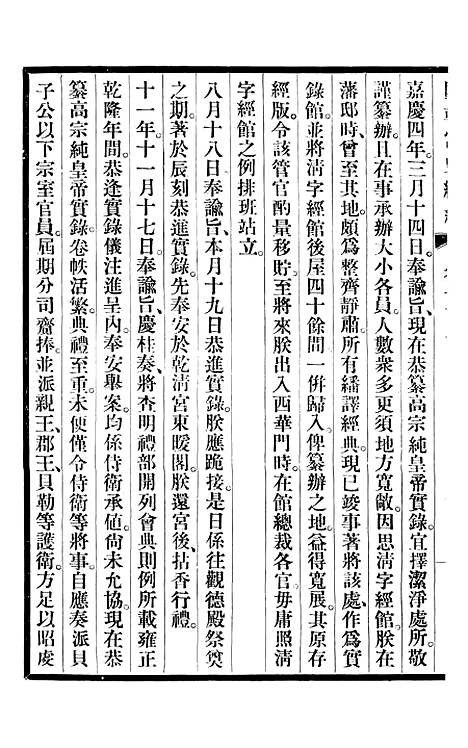 嘉慶四年三月十四日。奉諭旨、現在恭纂高宗純皇帝實錄。宜擇潔淨處所。敬
謹纂辦。且在事承辦大小各員。人數衆多。更須地方寬敞。因思清字經館。朕在
藩邸時、曾至其地。頗爲整齊靜肅。所有繙譯經典。現已竣事。著將該處、作爲實
錄館。並將清字經館後屋四十餘間一併歸入。俾纂辦之地。益得寬展。其原存
經版。令該管官酌量移貯。至將來朕出入西華門時。在館總裁各官。毋庸照清
字經館之例排班站立。
八月十八日奉諭旨、本月十九日恭進實錄。朕應跪接。是日係往觀德殿祭奠
之期。著於辰刻恭進實錄。先奉安於乾清宮東暖閣。朕還宮後、拈香行禮。
十一年十一月十七日奉諭旨、慶桂奏、將查明禮部開列會典則例所載雍正
乾隆年間。恭逢實錄儀注進呈。內奉安舉案。均係侍衛承値。尚未允協。現在恭
纂高宗純皇帝實錄。卷帙浩繁。典禮至重。未便僅令侍衛等將事。自應奏派貝
子公以下宗室官員。屆期分司齋捧。並派親王、郡王、貝勒等護衛。方足以昭虔